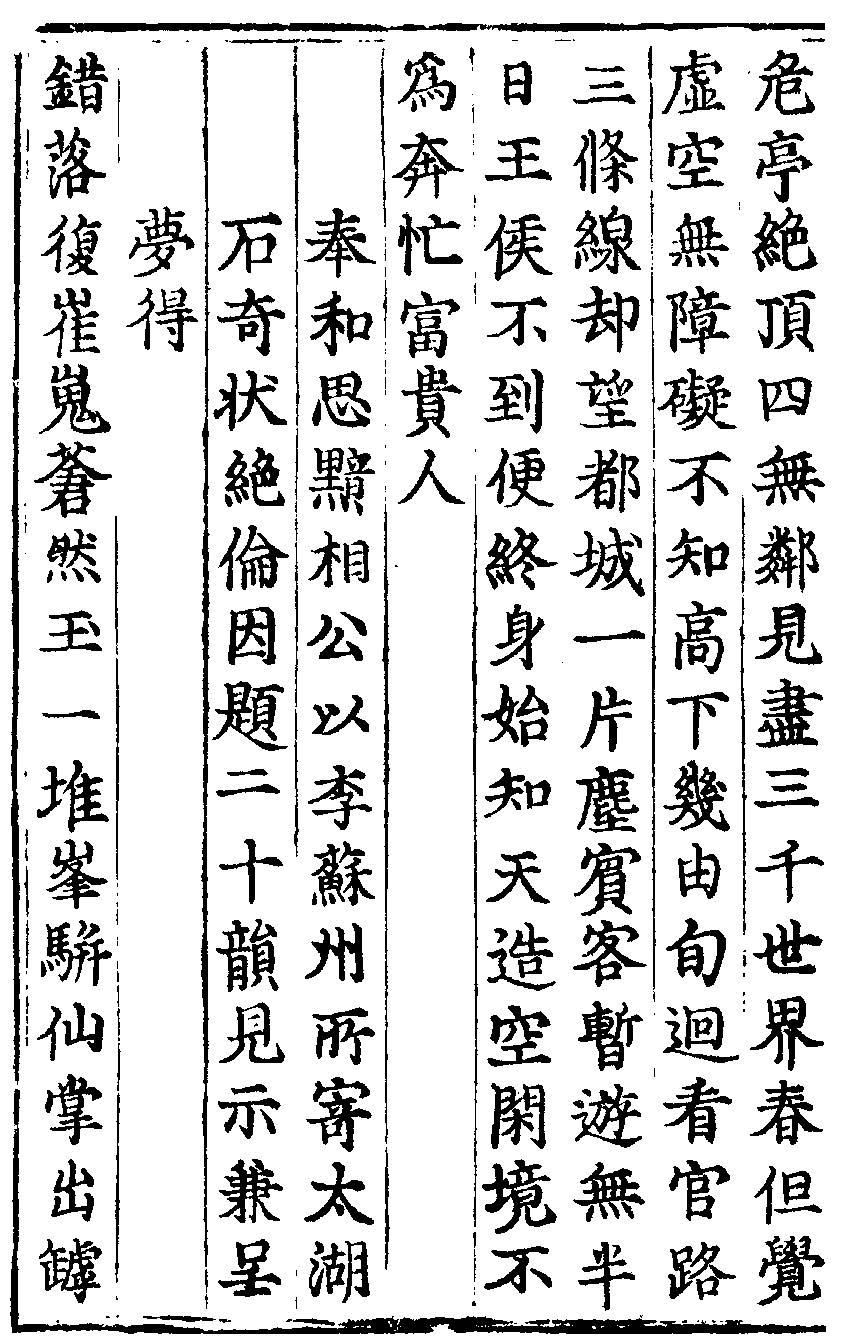 危亭絶頂四無鄰見盡三千世界春但覺
虛空無障礙不知高下幾由旬迴看官路
三條線却望都城一片塵賓客暫遊無半
日王侯不到便終身始知天造空閑境不
爲奔忙富貴人
奉和思黯相公以李蘇州所寄太湖
石奇狀絶倫因題二十韻見示兼呈
夢得
錯落復崔嵬蒼然玉一堆峯駢仙掌出罅